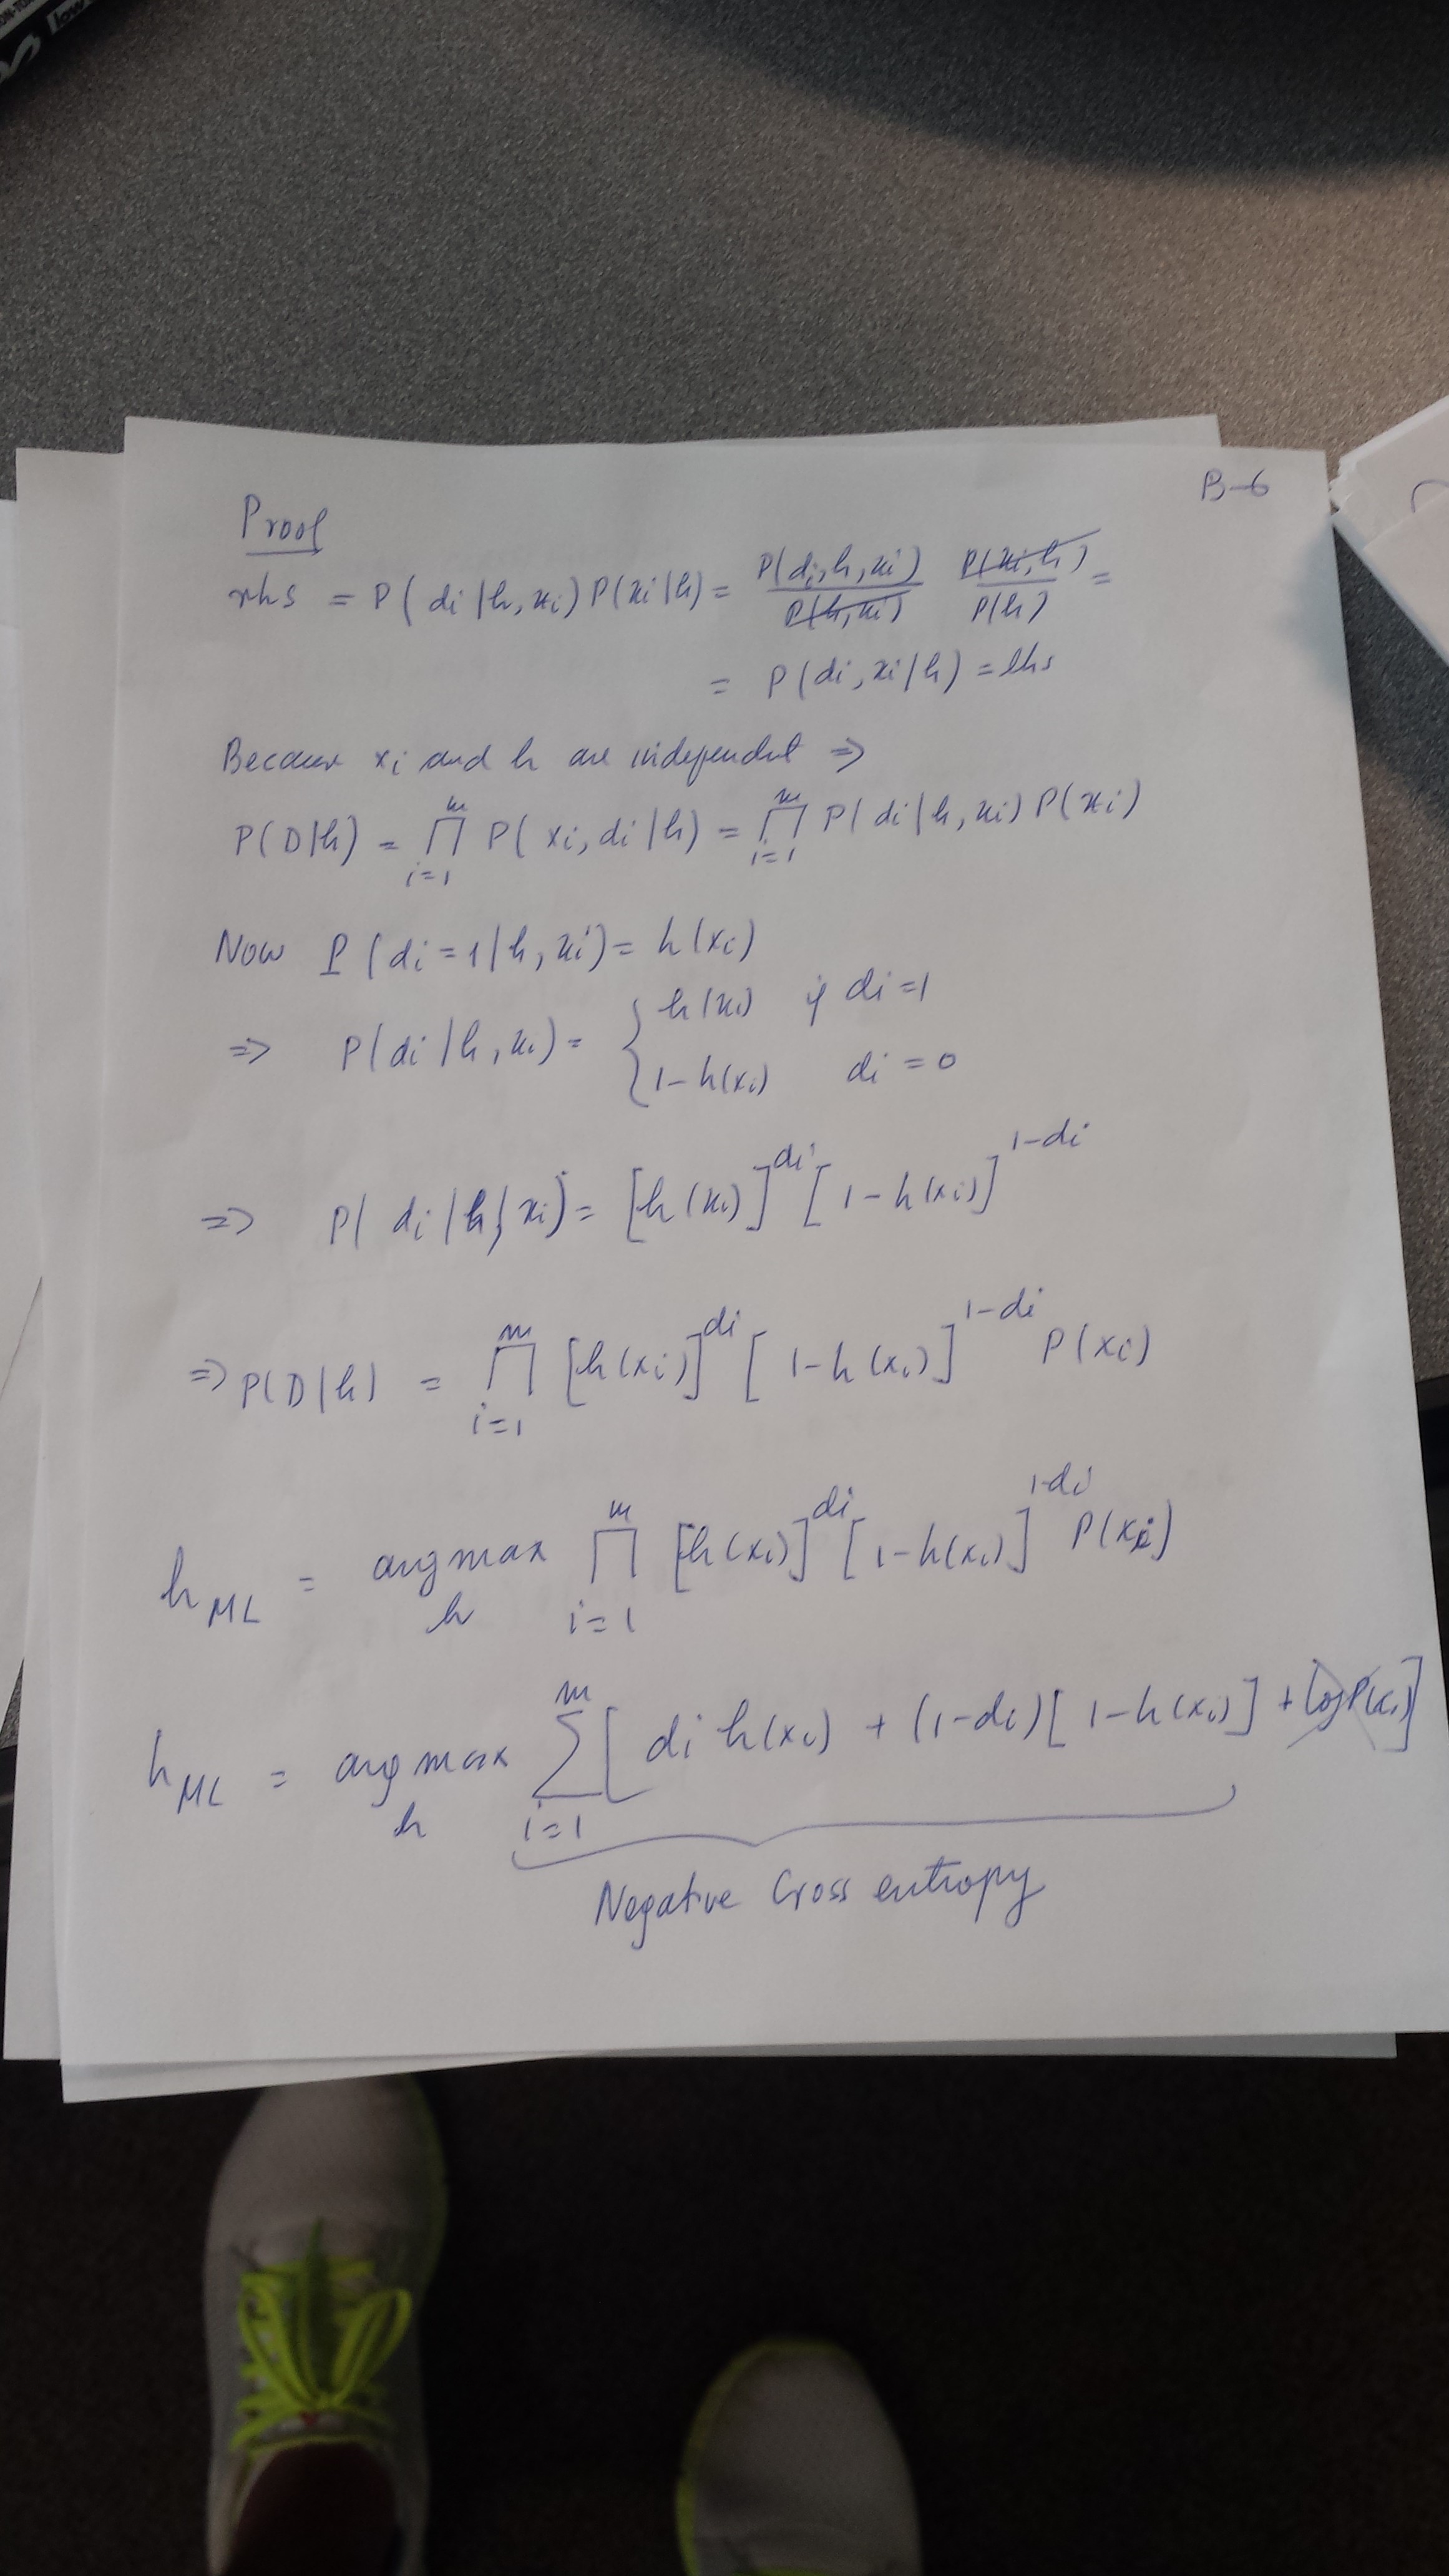 B-6
Proof
rhs = P(di|h,xi)P(xi|h) = P(di,h,xi)/P(h,xi) P(xi,h)/P(h) =
= P(di,xi|h) = lhs
Because xi and h are independent ⇒
P(D|h) = ∏_{i=1}^{m} P(xi,di|h) = ∏_{i=1}^{m} P(di|h,xi)P(xi)
Now P(di=1|h,xi) = h(xi)
⇒ P(di|h,xi) = { h(xi) if di=1
1-h(xi) di=0
⇒ P(di|h,xi) = [h(xi)]^{di} [1-h(xi)]^{1-di}
⇒ P(D|h) = ∏_{i=1}^{m} [h(xi)]^{di} [1-h(xi)]^{1-di} P(xi)
h_{ML} = argmax_{h} ∏_{i=1}^{m} [h(xi)]^{di} [1-h(xi)]^{1-di} P(xi)
h_{ML} = argmax_{h} ∑_{i=1}^{m} [di h(xi) + (1-di)[1-h(xi)] + log P(xi)]
Negative Cross entropy